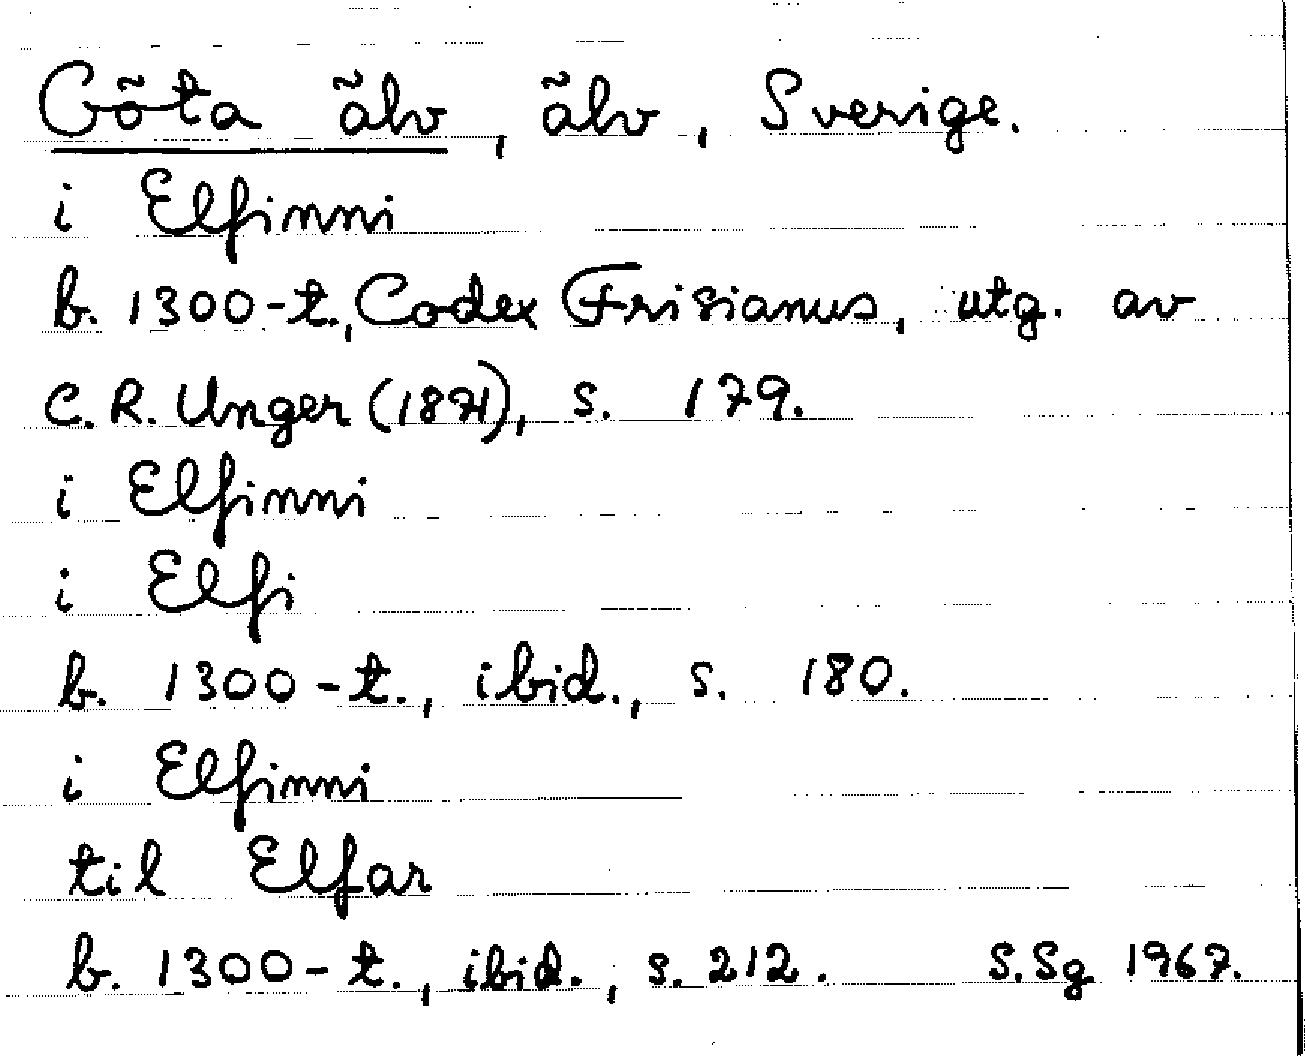 Göta älv, älv, Sverige.
i Elfinni
b. 1300-t., Codex Frisianus, utg. av
C. R. Unger (1871), s. 179.
i Elfinni
i Elfi
b. 1300-t., ibid., s. 180.
i Elfinni
til Elfar
b. 1300-t., ibid., s. 212. S.Sg 1967.